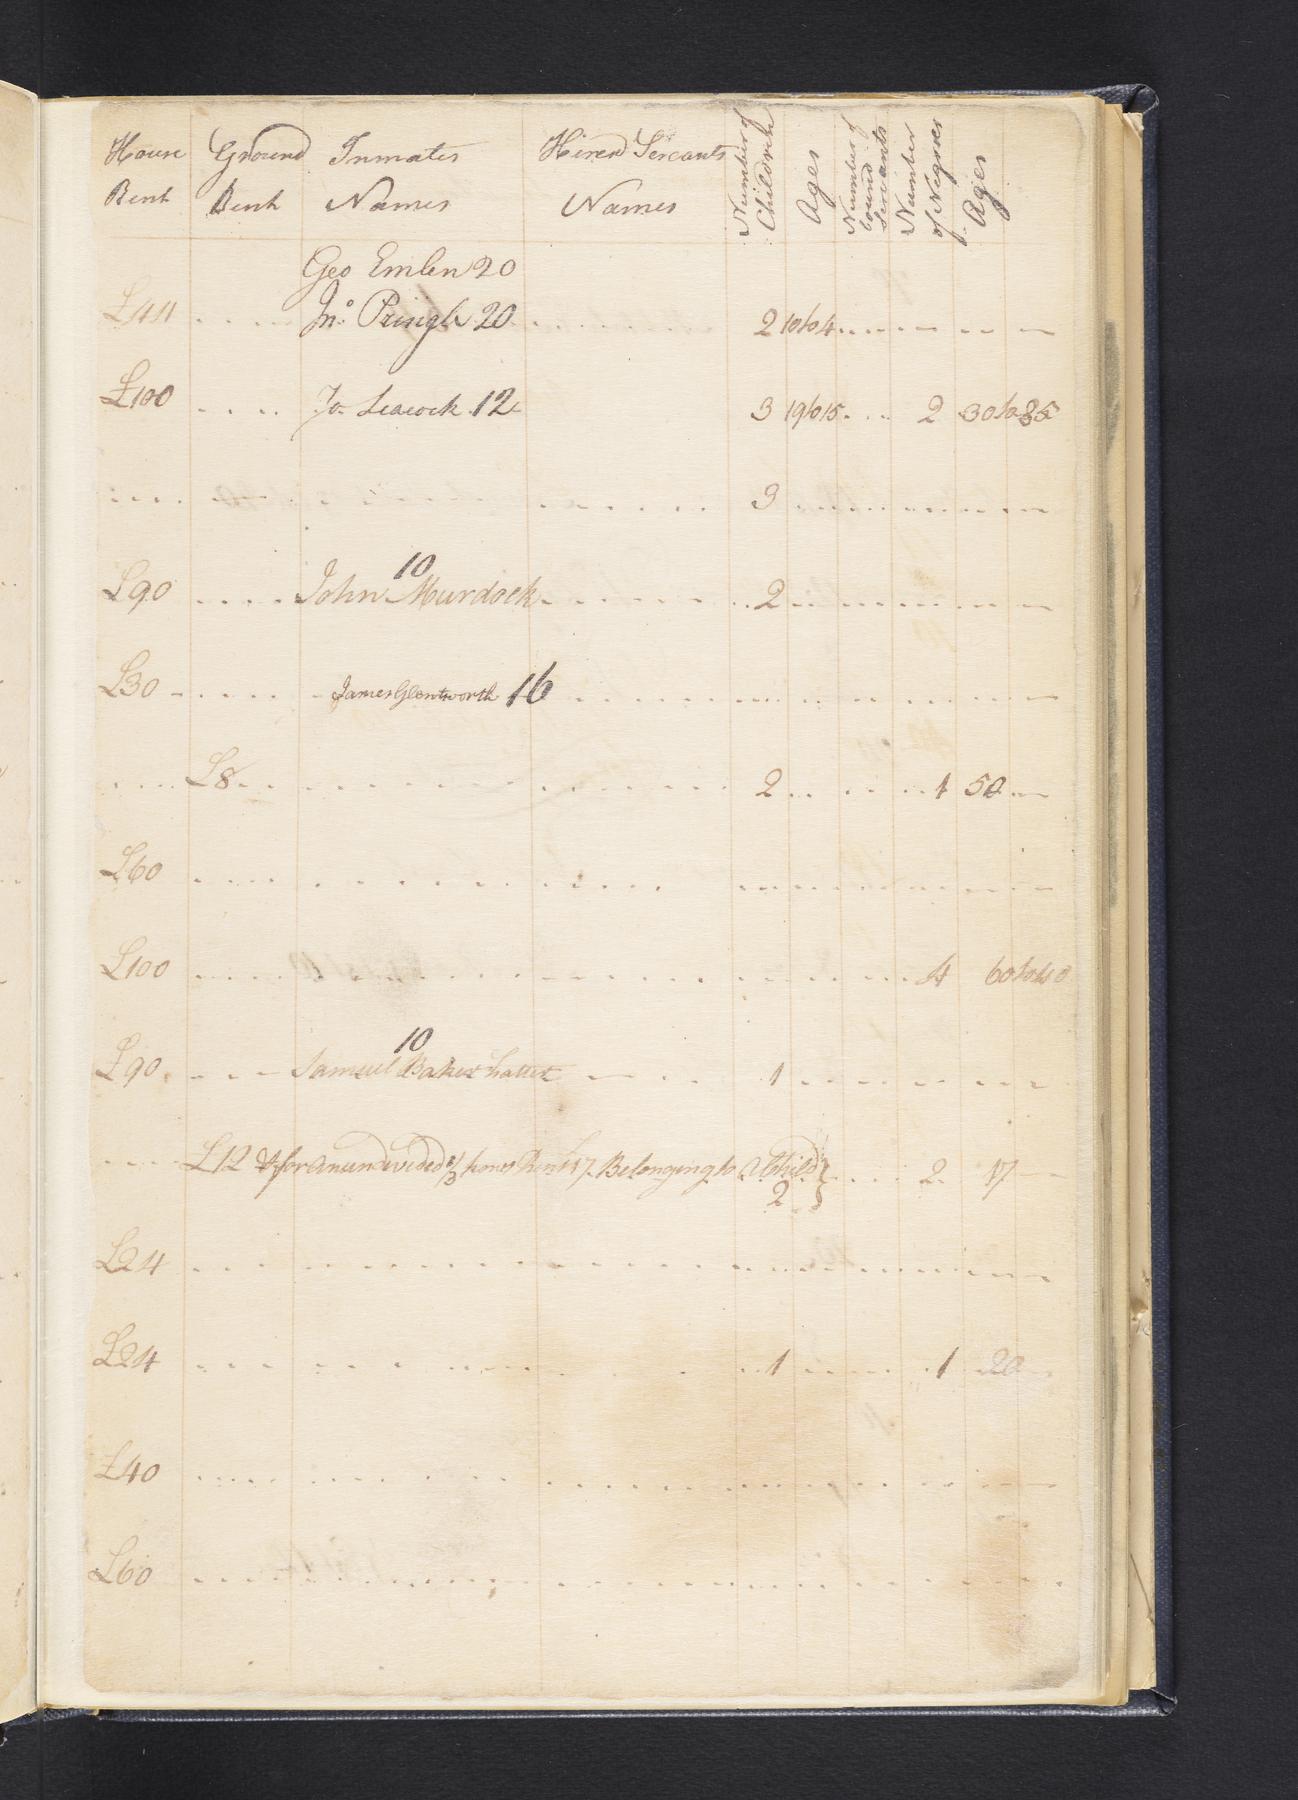 House Rent Ground Rent Inmates Names Hired Servants Names Number of Children Ages Number of bound Servants Number of Negroes Ages
Geo Emlen 20
£44 Jno. Pringle 20 2 10 to 4
£100 Jo. Leacock 12 3 19 to 15 2 30 to 35
3
10
£90 John Murdock 2
£30 James Glentworth 16
£8 2 1 50
£60
£100 4 60 to 40
10
£90 Samuel Baker hatter 1
£12 & for an undivided 1/3 Rent £17. Belonging to Child
2 2 17
£24
£24 1 20
£40
£60